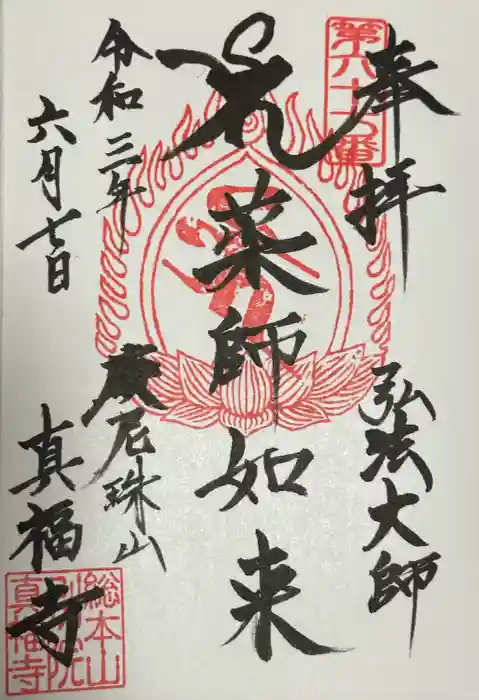 第六十七番
奉拝
弘法大師
薬師如来
令和三年
六月七日
摩尼珠山
真福寺
総本山
真福寺